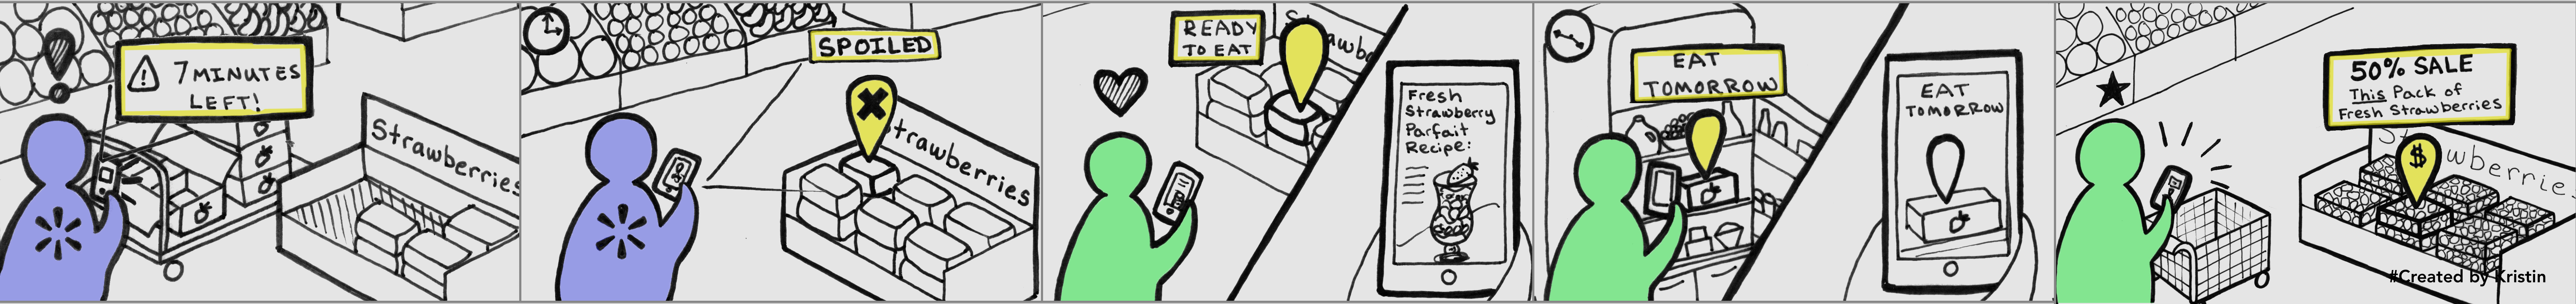 7 MINUTES
LEFT!
Strawberries
SPOILED
trawberries
READY
TO EAT
S
awbe
Fresh
Strawberry
Parfait
Recipe:
EAT
TOMORROW
EAT
TOMORROW
50% SALE
This Pack of
Fresh Strawberries
$
St
wberries
#Created by Kristin